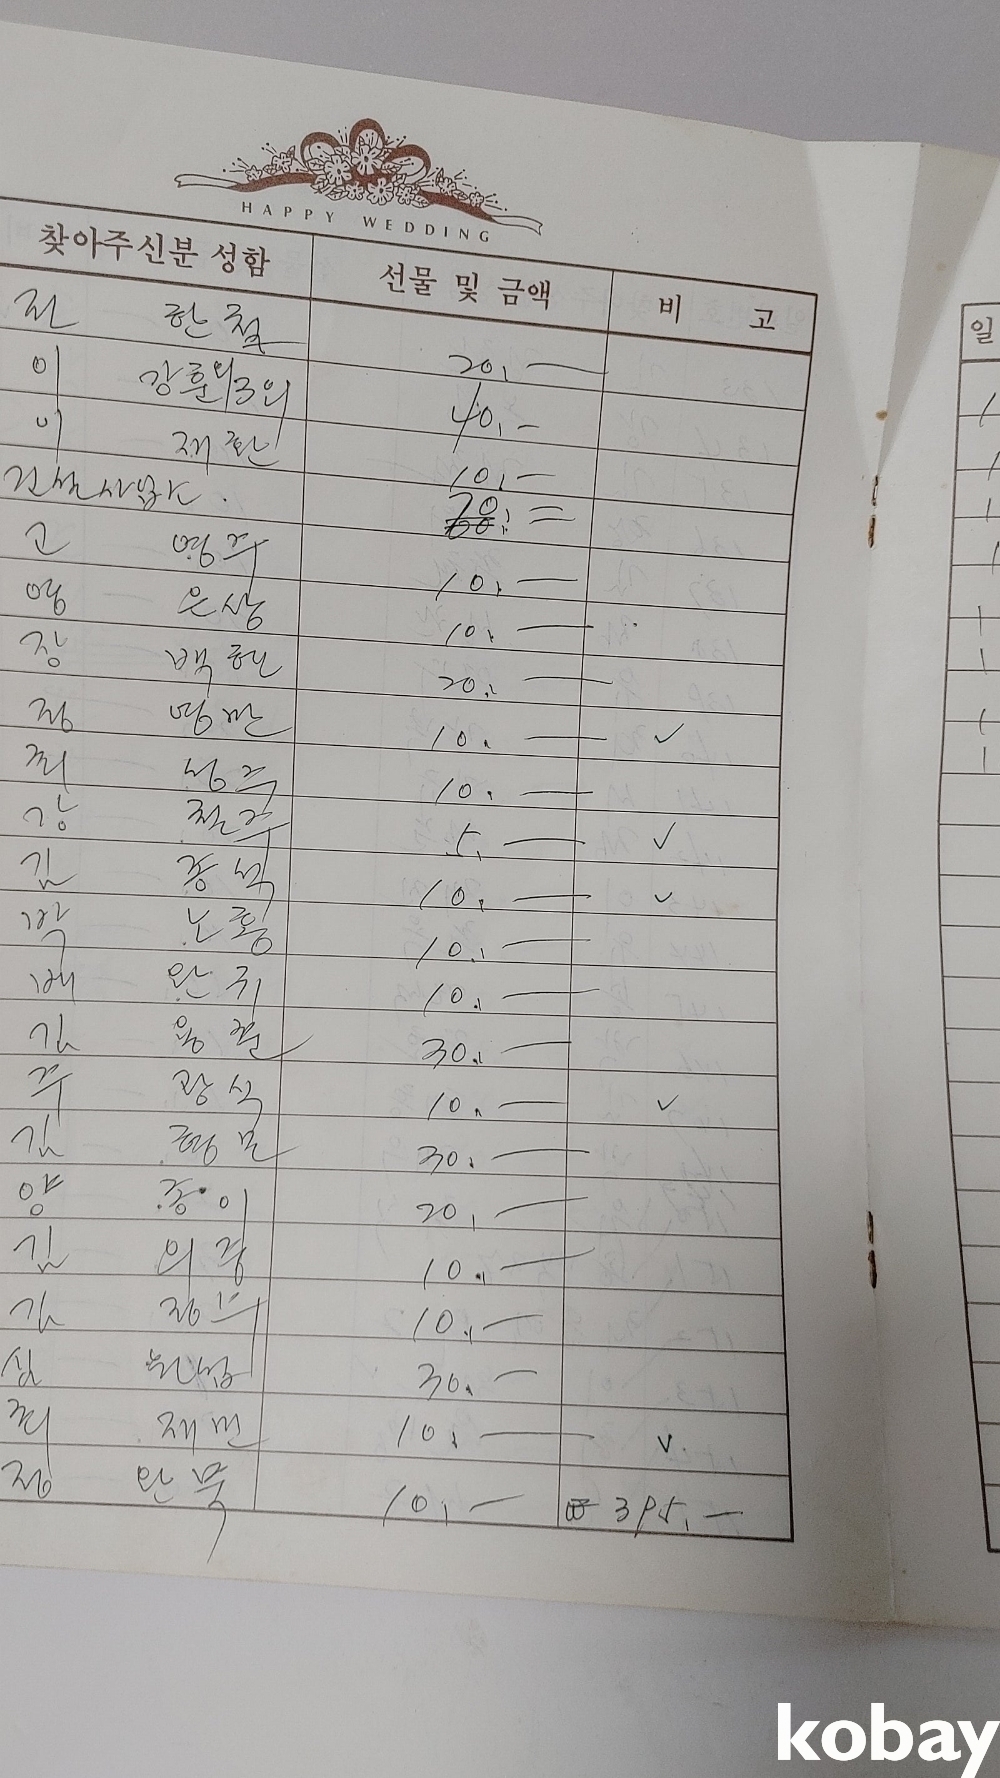 HAPPY WEDDING
찾아주신분 성함 선물 및 금액 비 고
전 한철 20,—
이 강훈외3인 40,—
이 재환 10,—
건설사업소. =
고 영주 10,—
은상 10,—
장 백현 20,—
정 영만 10,— ✓
최 성주 10,—
강 철주 5,— ✓
김 종석 10,— ✓
박 노홍 10,—
배 완귀 10,—
김 용환 30,—
주 광식 10,— ✓
김 형문 30,—
양 종이 20,—
김 의중 10,—
김 정수 10,—
심 30,—
최 재민 10,— ✓
정 완묵 10,— 395,—
일
kobay